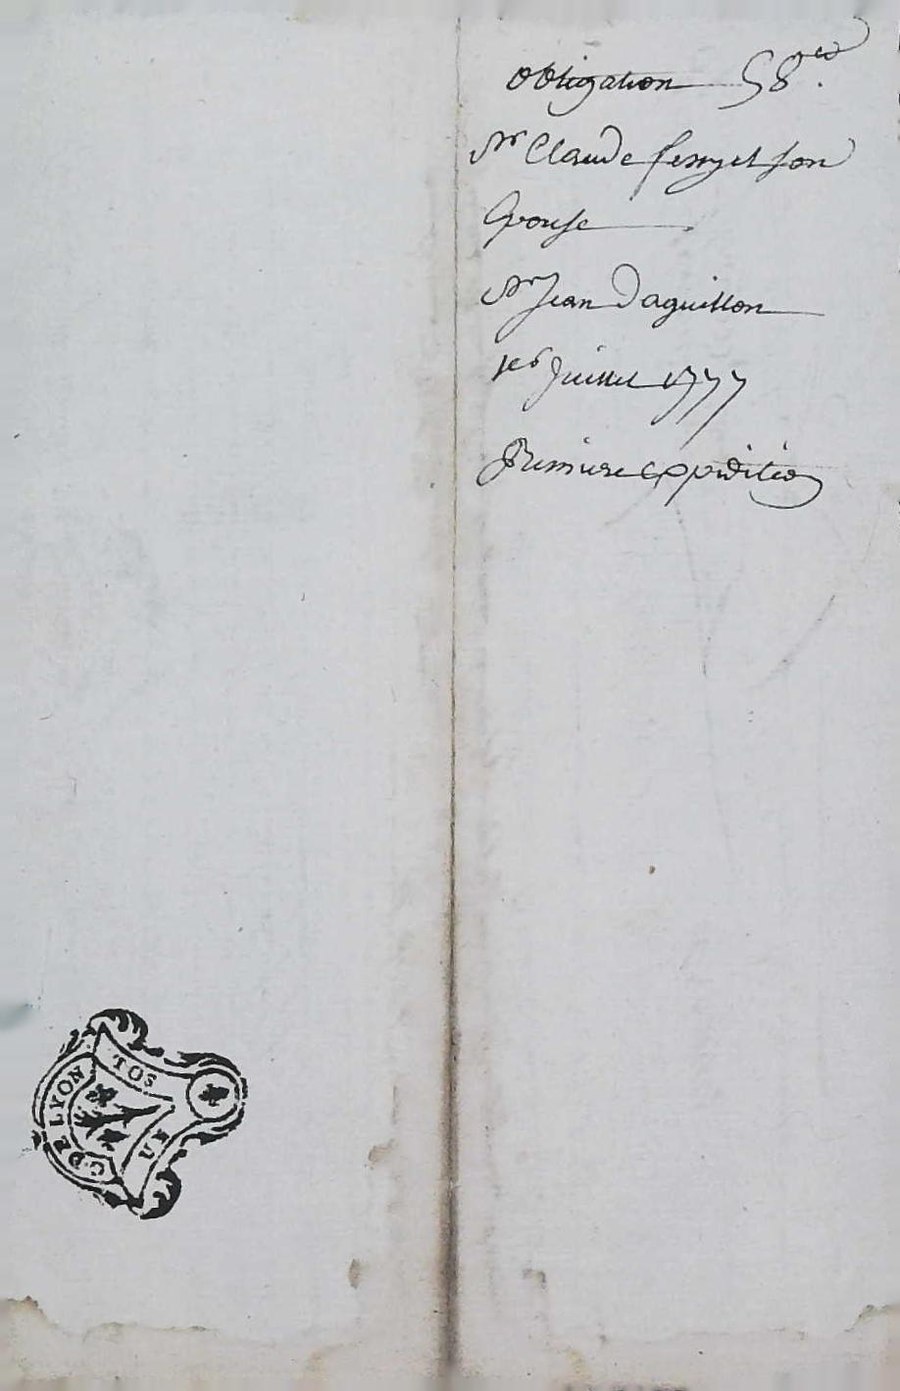 obligation 58
Sr Claude ferry et son
Epouse
Sr Jean Daguillon
1er Juillet 1777
Premiere expedition
TOS
G. DE LYON